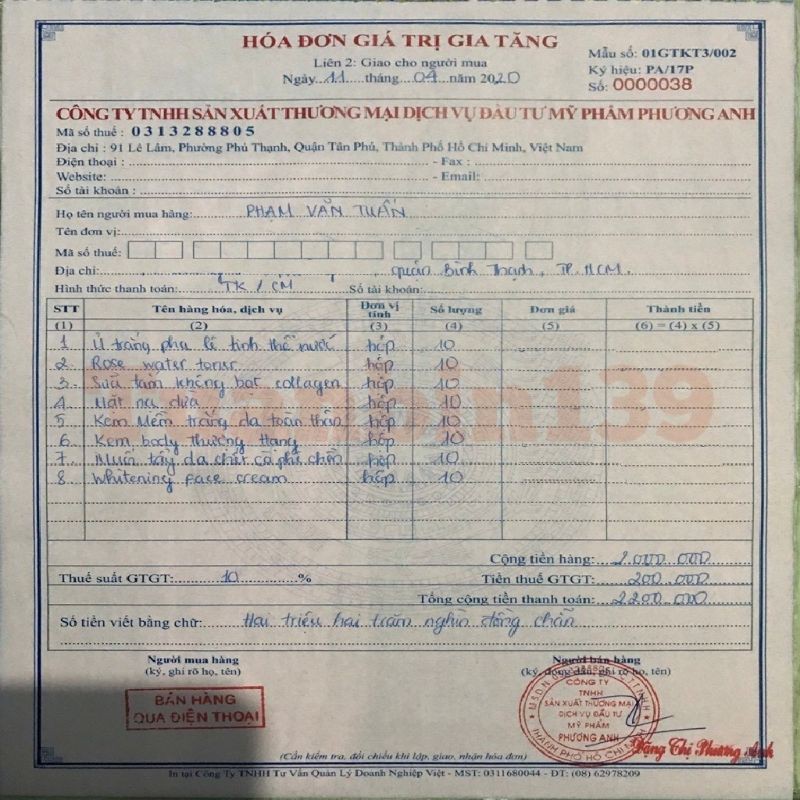 HÓA ĐƠN GIÁ TRỊ GIA TĂNG
Liên 2: Giao cho người mua
Ngày 11 tháng 04 năm 2020
Mẫu số: 01GTKT3/002
Ký hiệu: PA/17P
Số: 0000038
CÔNG TY TNHH SẢN XUẤT THƯƠNG MẠI DỊCH VỤ ĐẦU TƯ MỸ PHẨM PHƯƠNG ANH
Mã số thuế: 0313288805
Địa chỉ: 91 Lê Lâm, Phường Phú Thạnh, Quận Tân Phú, Thành Phố Hồ Chí Minh, Việt Nam
Điện thoại: - Fax:
Website: - Email:
Số tài khoản:
Họ tên người mua hàng: PHẠM VĂN TUẤN
Tên đơn vị:
Mã số thuế:
Địa chỉ: quận Bình Thạnh, TP. HCM.
Hình thức thanh toán: TK / CM Số tài khoản:
STT Tên hàng hóa, dịch vụ Đơn vị tính Số lượng Đơn giá Thành tiền
(1) (2) (3) (4) (5) (6) = (4) x (5)
1 Ủ trắng pha lê tinh thể nước hộp 10
2 Rose water toner hộp 10
3 Sữa tắm không bọt collagen hộp 10
4 Mặt nạ dừa hộp 10
5 Kem Mềm trắng da toàn thân hộp 10
6 Kem body thượng hạng hộp 10
7 Muối tẩy da chết cà phê hộp 10
8 Whitening face cream hộp 10
Cộng tiền hàng: 2.000.000
Thuế suất GTGT: 10 % Tiền thuế GTGT: 200.000
Tổng cộng tiền thanh toán: 2.200.000
Số tiền viết bằng chữ: Hai triệu hai trăm nghìn đồng chẵn
Người mua hàng Người bán hàng
(ký, ghi rõ họ, tên) (ký, đóng dấu, ghi rõ họ, tên)
BÁN HÀNG
QUA ĐIỆN THOẠI
CÔNG TY
TNHH
SẢN XUẤT THƯƠNG MẠI
DỊCH VỤ ĐẦU TƯ
MỸ PHẨM
PHƯƠNG ANH
THÀNH PHỐ HỒ CHÍ MINH
Đặng Thị Phương Anh
(Cần kiểm tra, đối chiếu khi lập, giao, nhận hóa đơn)
In tại Công Ty TNHH Tư Vấn Quản Lý Doanh Nghiệp Việt - MST: 0311680044 - ĐT: (08) 62978209